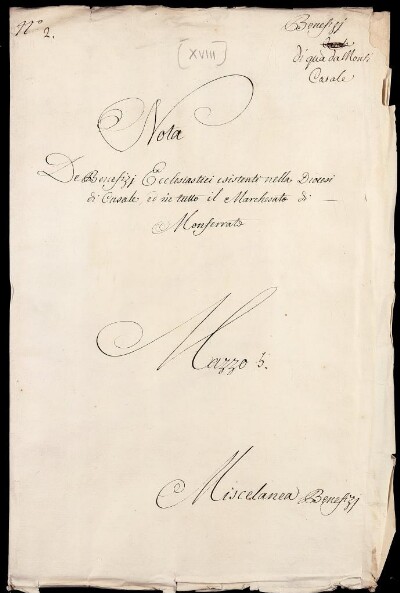 N.º 2.
Benefizj
di quà da Monti
Casale
[XVIII]
Nota
De Benefizj Ecclesiastici esistenti nella Diocesi
di Casale, ed in tutto il Marchesato di —
Monferrato
Mazzo 5.
Miscelanea Benefizj